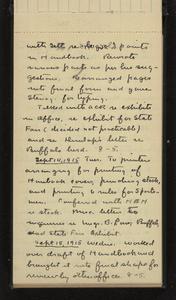 with Seth re changed points
in Handbook. Rewrote
various parts as per his sug-
gestions. Rearranged pages
into final form and gave
Stenog. for typing.
Talked with ACR re exhibit
in office, re exhibit for State
Fair (decided not practicable)
and re Dunlap's letter re
Buffalo herd. 8 - 5.
Sept 14, 1915 Tues. To printers
arranging for printing of
Handbook covers, providing stock,
and printing rules for Sports-
men. Conferred with HBM
re stock. Misc. letters to
inquiries re maps, B. Lom, Buffalo,
and State Fair Exhibit.
Sept. 15, 1915 Wedns. Worked
over draft of Handbook and
brought it into final shape for
review by other office. 8-5.